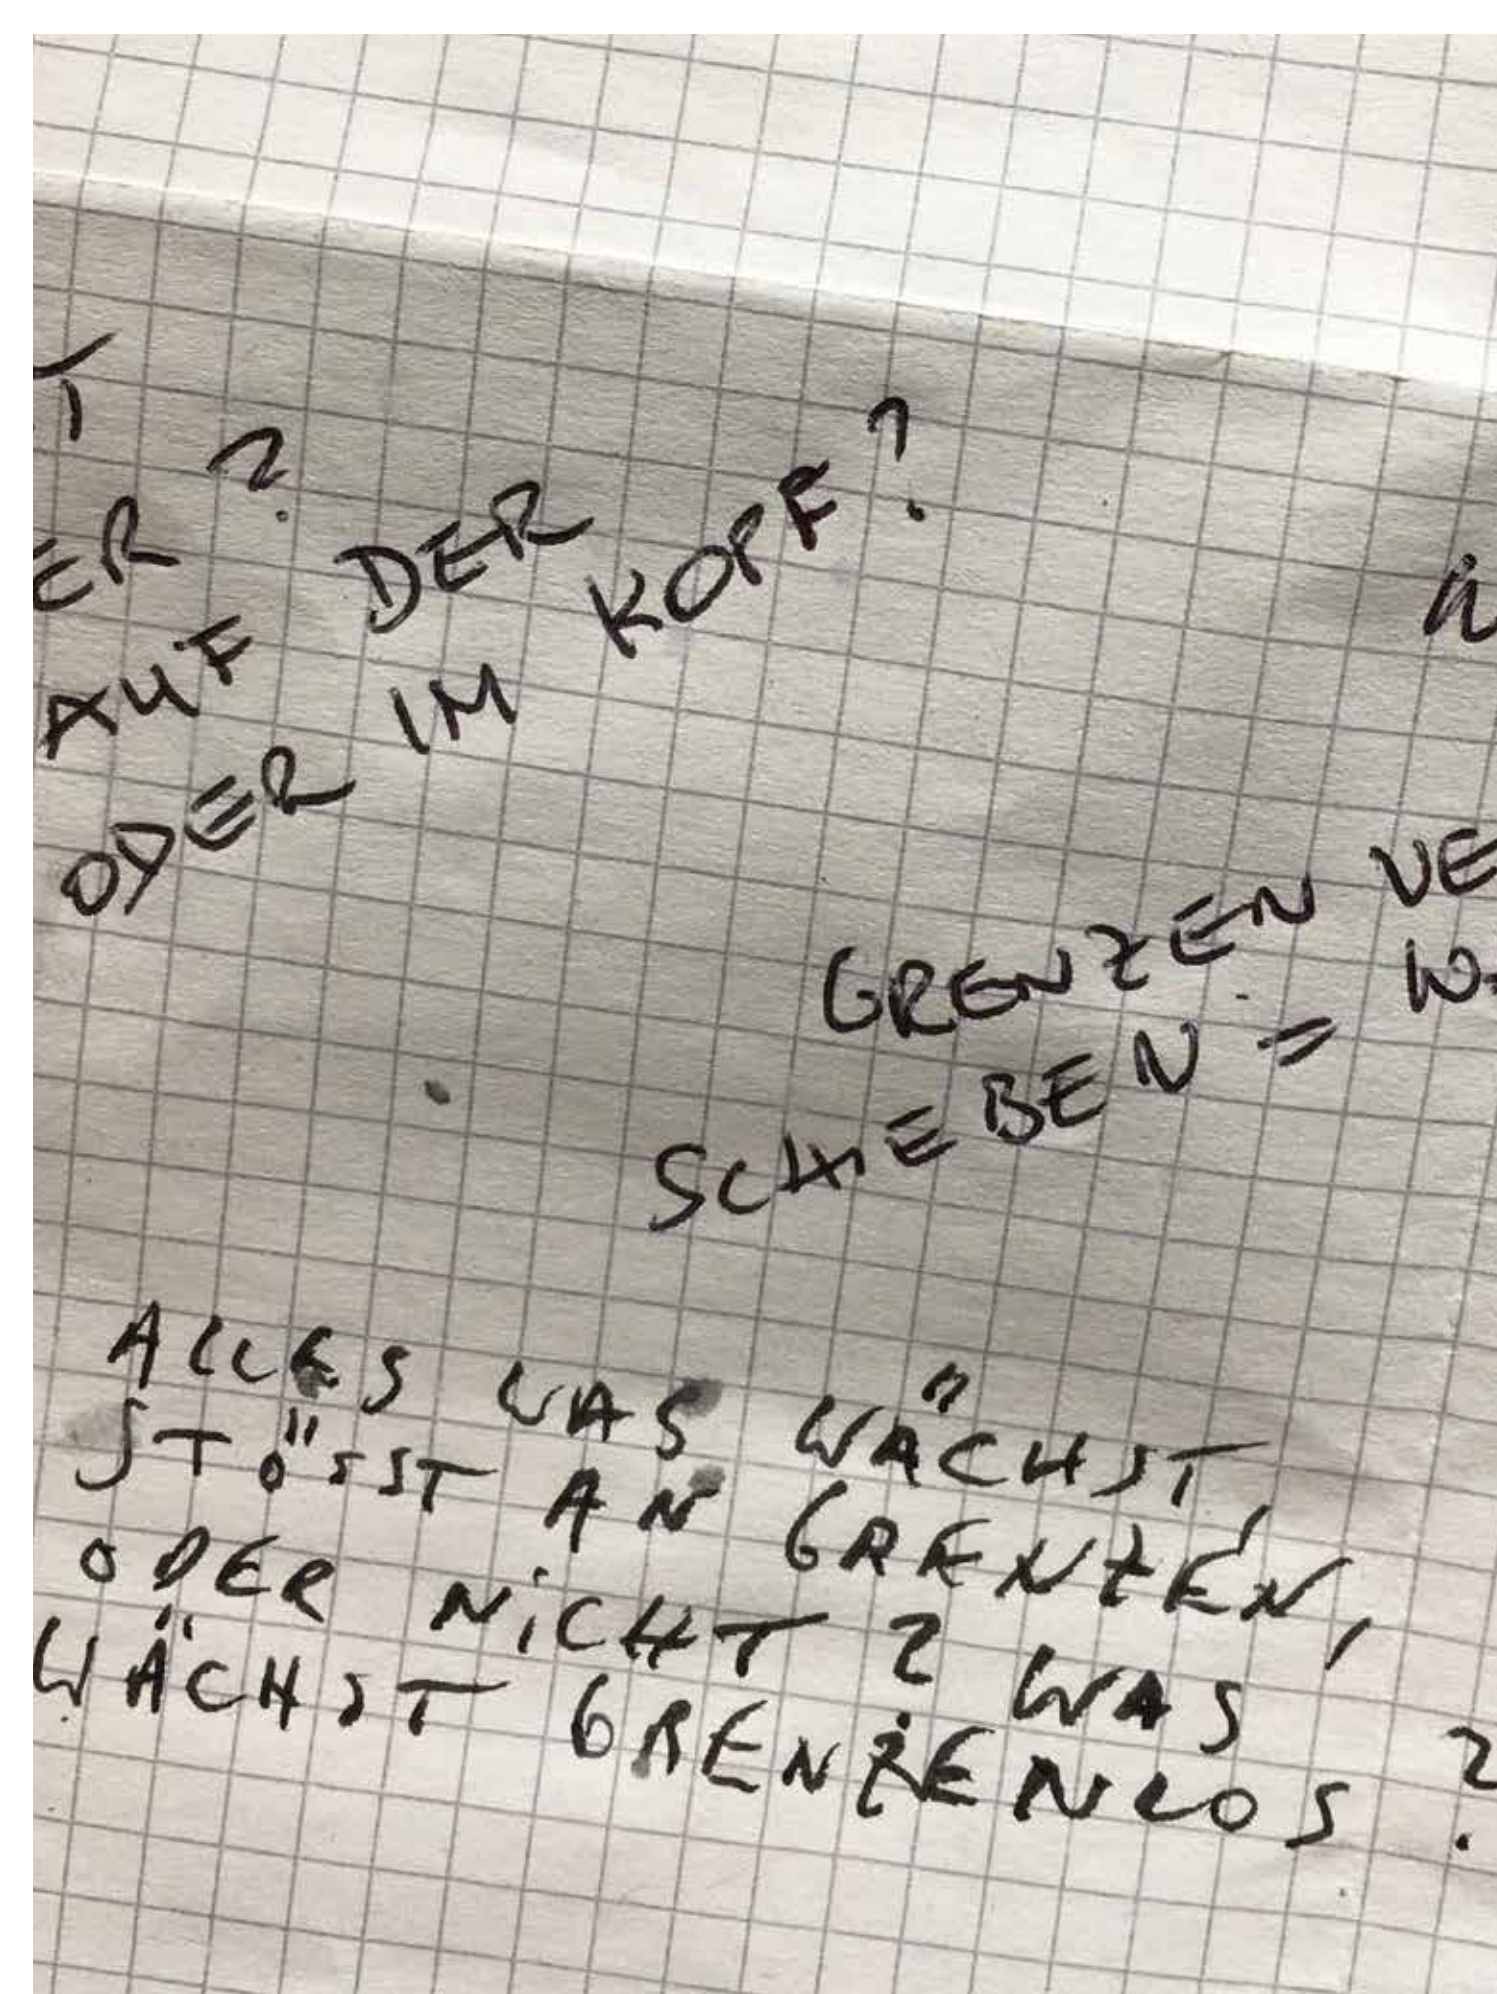 T
ER?
AUF DER
ODER IM KOPF?
GRENZEN VE
SCHIEBEN = W
ALLES WAS WÄCHST,
STÖSST AN GRENZEN,
ODER NICHT? WAS
WÄCHST GRENZENLOS?